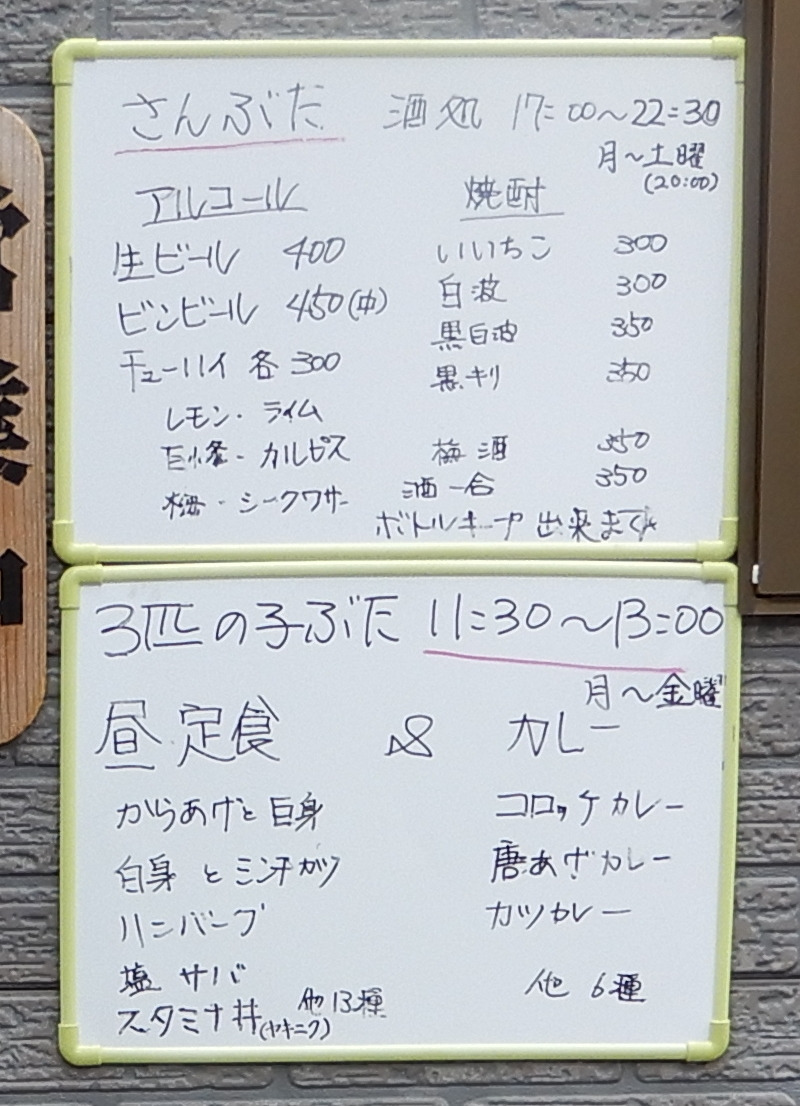 さんぶた 酒処 17:00～22:30
月～土曜
(20:00)
アルコール
生ビール 400
ビンビール 450(中)
チューハイ 各 300
レモン・ライム
巨峰・カルピス
梅・シークワサー
焼酎
いいちこ 300
白波 300
黒白波 350
黒キリ 350
梅酒 350
酒一合 350
ボトルキープ 出来ます
3匹の子ぶた 11:30～13:00
月～金曜
昼定食 & カレー
からあげと白身
白身とミンチカツ
ハンバーグ
塩サバ
スタミナ丼(ヤキニク) 他13種
コロッケカレー
唐あげカレー
カツカレー
他 6種